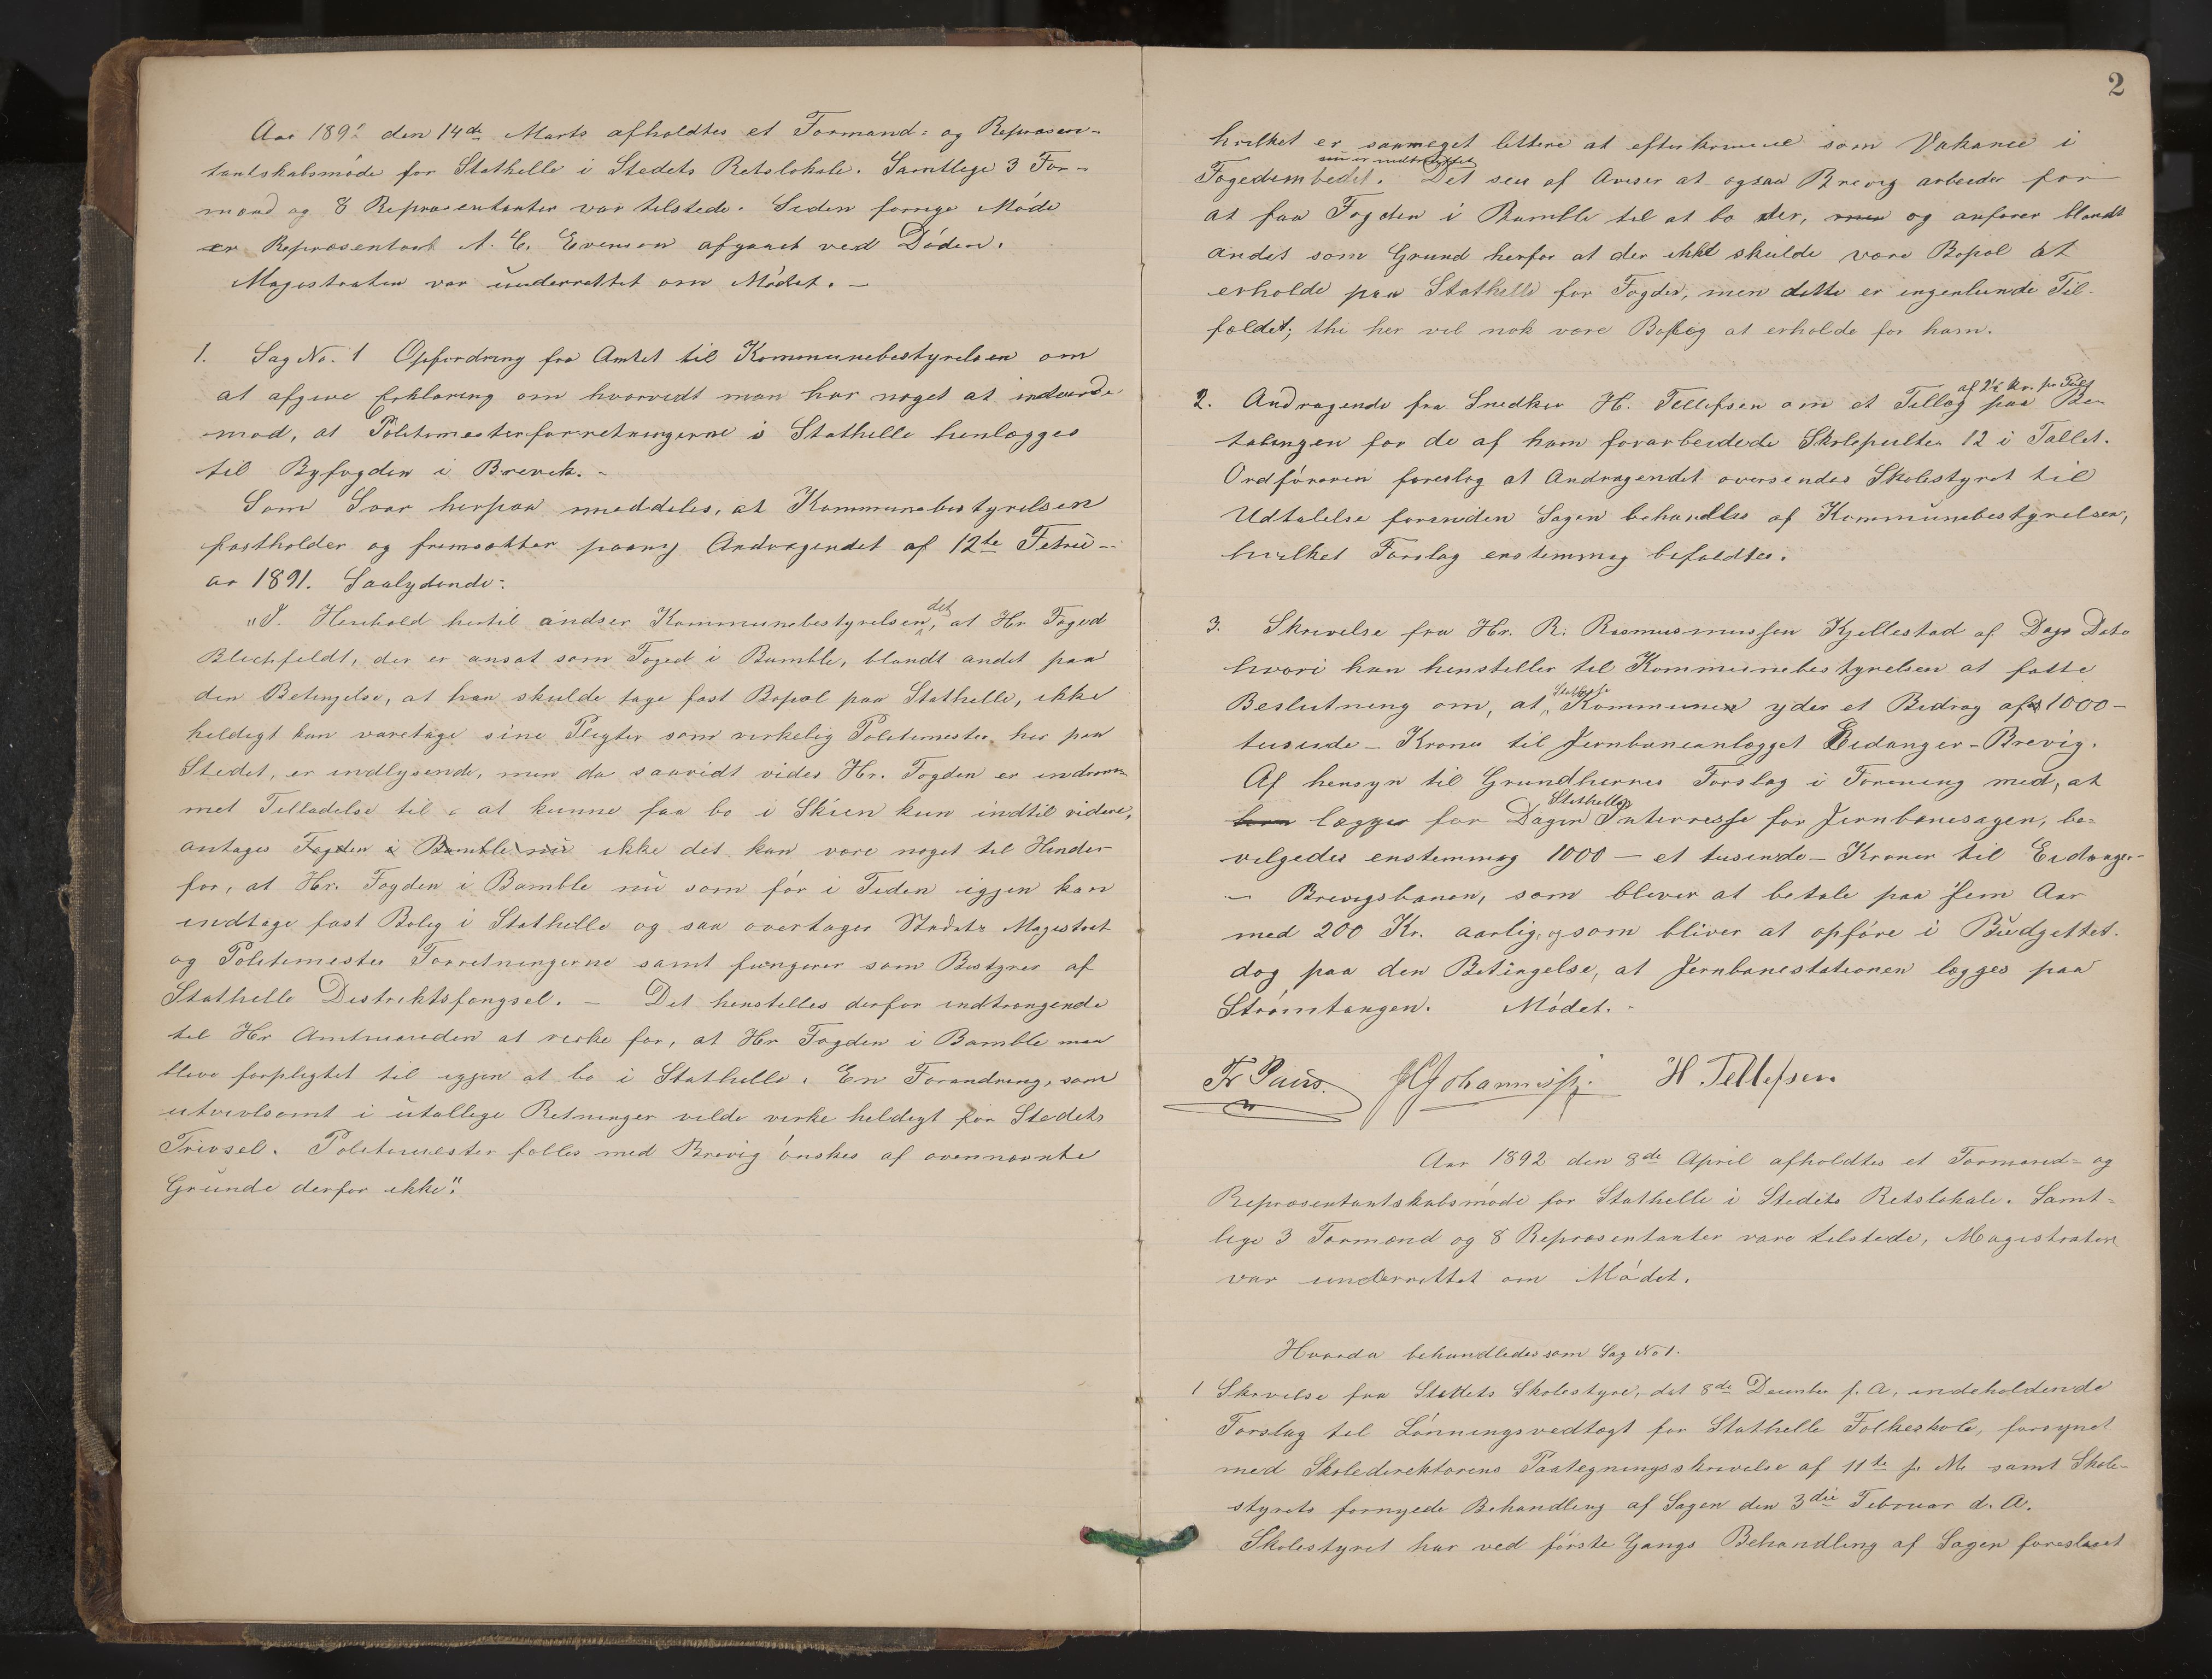 Aar 1892 den 14de Marts afholdtes et Formand- og Repræsen-
tantskabsmøde for Stathelle i Stedets Retslokale. Samtlige 3 For-
mænd og 8 Repræsentanter var tilstede. Siden forrige Møde
er Repræsentant N. C. Evensen afgaaet ved Døden.
Magistraten var underrettet om Mødet. —
1. Sag No. 1 Opfordring fra Amtet til Kommunebestyrelsen om
at afgive Erklæring om hvorvidt man har noget at indvende
mod, at Politimesterforretningerne i Stathelle henlægges
til Byfogden i Brevik. -
Som Svar herpaa meddeles, at Kommunebestyrelsen
fastholder og fremsætter paany Andragendet af 12te Febru-
ar 1891. Saalydende:
"I Henhold hertil andser Kommunebestyrelsen det, at Hr Foged
Blechfeldt, der er ansat som Foged i Bamble, blandt andet paa
den Betingelse, at han skulde tage fast Bopæl paa Stathelle, ikke
heldigt kan varetage sine Pligter som virkelig Politimester her paa
Stedet, er indlysende, men da saavidt vides Hr. Fogden er indrøm-
met Tilladelse til at kunne faa bo i Skien kun indtil videre,
antages Fogden i Bamble nu ikke det kan være noget til Hinder
for, at Hr. Fogden i Bamble nu som før i Tiden igjen kan
indtage fast Bolig i Stathelle og saa overtager Stedets Magistrat
og Politimester Forretningerne samt fungerer som Bestyrer af
Stathelle Distriktsfængsel. — Det henstilles derfor indtrængende
til Hr Amtmanden at virke for, at Hr Fogden i Bamble maa
blive forpligtet til igjen at bo i Stathelle. En Forandring, som
utvivlsomt i utallige Retninger vilde virke heldigt for Stedets
Trivsel. Politimester fælles med Brevig ønskes af ovennævnte
Grunde derfor ikke".
2
hvilket er saameget lettere at efterkomme som Vakance i
nu er indtruffet
Fogedembedet. Det sees af Aviser at ogsaa Brevig arbeider for
at faa Fogden i Bamble til at bo der, men og anfører blandt
andet som Grund herfor at der ikke skulde være Bopæl at
erholde paa Stathelle for Fogden, men dette er ingenlunde Til-
fældet; thi her vil nok være Bolig at erholde for ham.
af 2½ Kr. pr Pult
2. Andragende fra Snedker H. Tellefsen om et Tillæg paa Be-
talingen for de af ham forarbeidede Skolepulter 12 i Tallet.
Ordføreren foreslog at Andragendet oversendes Skolestyret til
Udtalelse forinden Sagen behandles af Kommunebestyrelsen,
hvilket Forslag enstemmig bifaldtes.
3. Skrivelse fra Hr. R. Rasmusmussen Kjellestad af Dags Dato
hvori han henstiller til Kommunebestyrelsen at fatte
Stathelle
Beslutning om, at Kommunen yder et Bidrag af 1000 -
tusinde - Kroner til Jernbaneanlægget Eidanger - Brevig.
Af hensyn til Grundeiernes Forslag i Forening med, at
Stathelles
han lægger for Dagen Interresse for Jernbanesagen, be-
vilgedes enstemmig 1000 — et tusinde — Kroner til Eidanger-
- Brevigsbanen, som bliver at betale paa fem Aar
med 200 Kr. aarlig, og som bliver at opføre i Budgettet.
dog paa den Betingelse, at Jernbanestationen lægges paa
Strømtangen. Mødet. -
Fr Paus. H. Tellefsen
Aar 1892 den 8de April afholdtes et Formand- og
Repræsentantskabsmøde for Stathelle i Stedets Retslokale. Samt-
lige 3 Formænd og 8 Repræsentanter vare tilstede, Magistraten
var underrettet om Mødet.
Hvorda behandledes som Sag No 1.
1 Skrivelse fra Stedets Skolestyre, dat 8de December f. A, indeholdende
Forslag til Lønningsvedtægt for Stathelle Folkeskole, forsynet
med Skoledirektørens Paategningsskrivelse af 11te f. M. samt Skole-
styrets fornyede Behandling af Sagen den 3die Februar d. A.
Skolestyret har ved første Gangs Behandling af Sagen foreslaaet